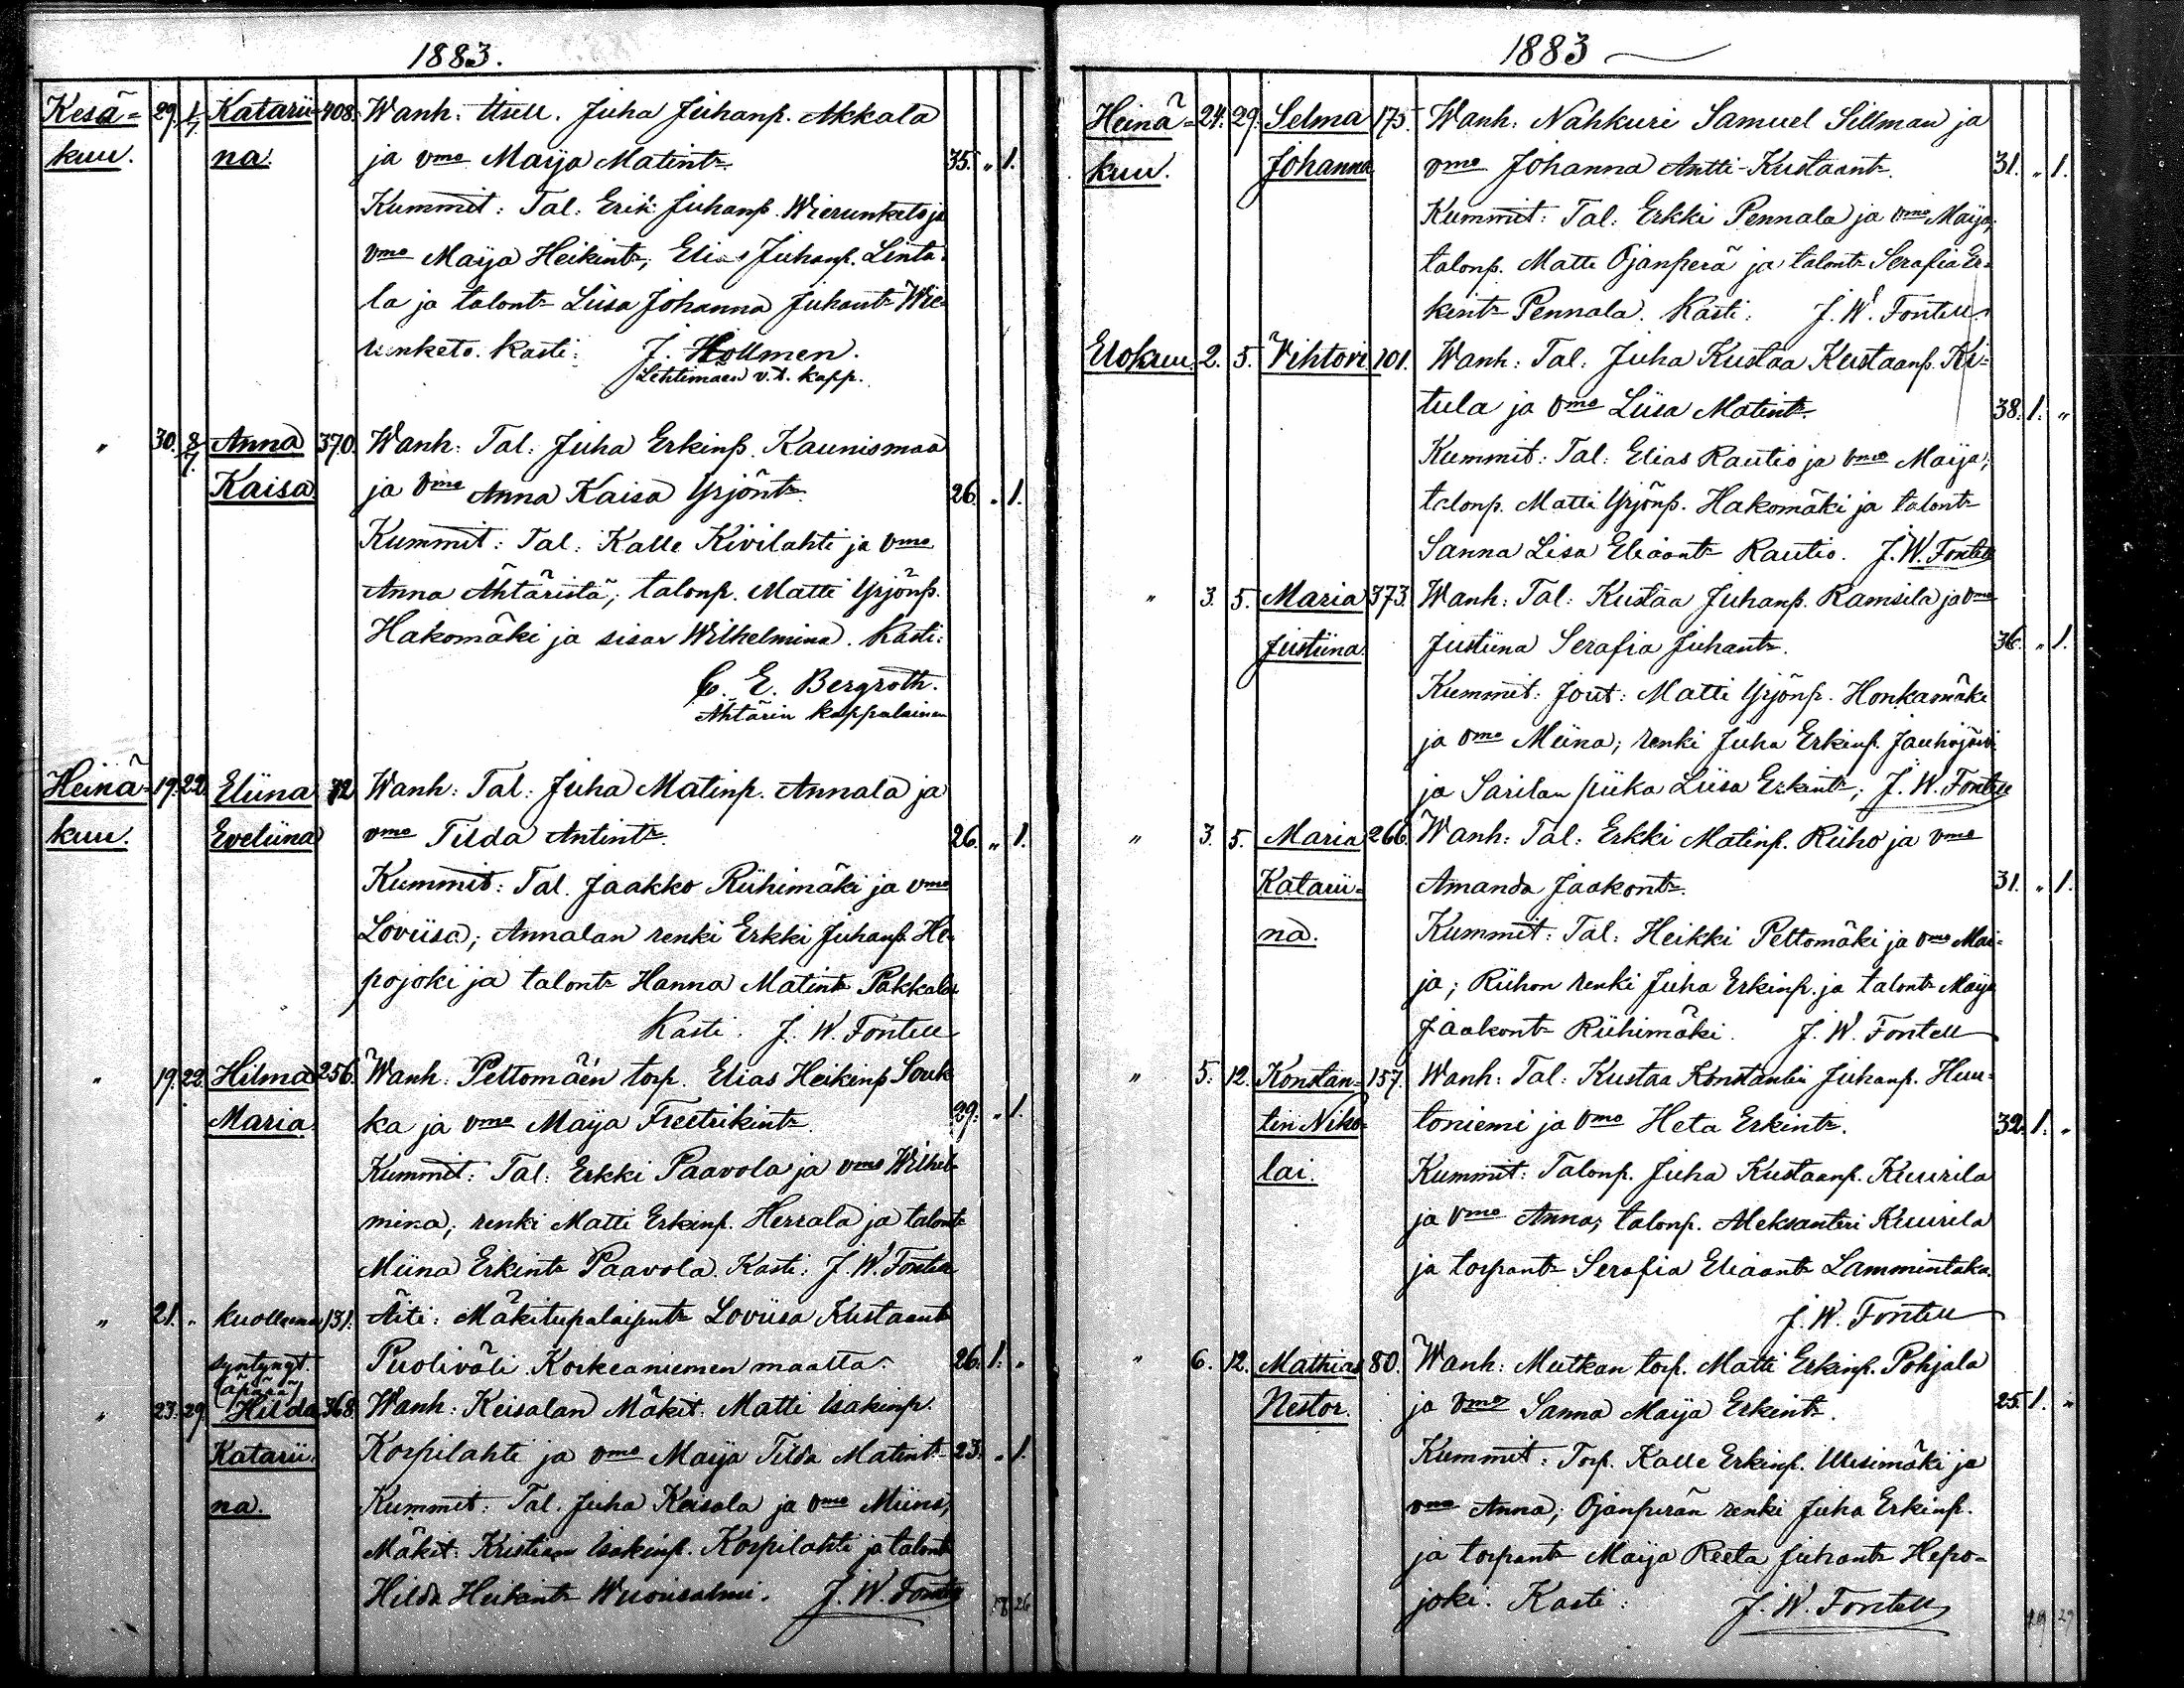 1883.
Kesä= 29. 1/7. Katarii= 408. Wanh: Itsell. Juha Juhanp. Akkala
kuu. na. ja vmo Maija Matintr. 35. „ 1.
Kummit: Tal: Erik Juhanp. Wierunketo ja
vmo Maija Heikintr; Elias Juhanp. Linta=
la ja talontr Liisa Johanna Juhantr Wie=
runketo. Kasti: J. Hollmen.
Lehtimäen v.t. kapp.
„ 30. 8/7. Anna 370. Wanh: Tal: Juha Erkinp. Kaunismaa
Kaisa. ja vmo Anna Kaisa Yrjöntr. 26. „ 1.
Kummit: Tal: Kalle Kivilahti ja vmo
Anna Ähtäristä; talonp. Matti Yrjönp.
Hakomäki ja sisar Wilhelmina. Kasti:
C. E. Bergroth.
Ähtärin kappalainen
Heinä= 19. 22. Eliina 72 Wanh: Tal: Juha Matinp. Annala ja
kuu. Eveliina vmo Tilda Antintr. 26. „ 1.
Kummit: Tal. Jaakko Riihimäki ja vmo
Loviisa; Annalan renki Erkki Juhanp. He=
pojoki ja talontr Hanna Matintr Pakkala
Kasti. J. W. Fontell
„ 19. 22. Hilma 256. Wanh: Peltomäen torp. Elias Heikinp Souk
Maria. ka ja vmo Maija Freetrikintr. 29. „ 1.
Kummit: Tal: Erkki Paavola ja vmo Wilhel=
mina; renki Matti Erkinp. Herrala ja talontr
Miina Erkintr Paavola. Kasti: J. W. Fontell
„ 21. „ kuolleena 131. Äiti: Mäkitupalaisentr Loviisa Kustaantr
syntynyt. Puoliväli Korkeaniemen maalta. 26. 1. „
(äpärä)
„ 23. 29. Hilda 368. Wanh: Keisalan Mäkit. Matti Isakinp.
Katarii= Korpilahti ja vmo Maija Tilda Matintr 23. „ 1.
na. Kummit: Tal. Juha Keisala ja vmo Miina;
Mäkit: Kristian Isakinp. Korpilahti ja talontr
Hilda Heikintr Wuorisalmi. J. W. Fontell
18 26
1883
Heinä= 24. 29. Selma 175. Wanh: Nahkuri Samuel Sillman ja
kuu. Johanna vmo Johanna Antti-Kustaantr. 31. „ 1.
Kummit: Tal: Erkki Pennala ja vmo Maija;
talonp. Matti Ojanperä ja talontr Serafia Er=
kintr Pennala. Kasti: J. W. Fontell
Elokuu. 2. 5. Vihtori 101. Wanh: Tal: Juha Kustaa Kustaanp. Ki=
tula ja vmo Liisa Matintr. 38. 1. „
Kummit: Tal: Elias Rautio ja vmo Maija;
talonp. Matti Yrjönp. Hakomäki ja talontr
Sanna Lisa Eliaantr Rautio. J. W. Fontell
„ 3. 5. Maria 373. Wanh: Tal: Kustaa Juhanp. Ramsila ja vmo
Justiina. Justiina Serafia Juhantr. 36. „ 1.
Kummit: Jout: Matti Yrjönp. Honkamäki
ja vmo Miina; renki Juha Erkinp. Jauhojärvi
ja Sarilan piika Liisa Erkintr; J. W. Fontell
„ 3. 5. Maria 266. Wanh: Tal: Erkki Matinp. Riiho ja vmo
Katarii= Amanda Jaakontr. 31. „ 1.
na. Kummit: Tal: Heikki Peltomäki ja vmo Mai=
ja; Riihon renki Juha Erkinp. ja talontr Maija
Jaakontr Riihimäki. J. W. Fontell
„ 5. 12. Konstan= 157. Wanh: Tal: Kustaa Konstantin Juhanp. Huu=
tin Niko= toniemi ja vmo Heta Erkintr. 32. 1. „
lai. Kummit: Talonp. Juha Kustaanp. Kuurila
ja vmo Anna; talonp. Aleksanteri Kuurila
ja torpantr Serafia Eliaantr Lammintaka.
J. W. Fontell
„ 6. 12. Mathias 80. Wanh: Mutkan torp. Matti Erkinp. Pohjala
Nestor. ja vmo Sanna Maija Erkintr. 25. 1. „
Kummit: Torp. Kalle Erkinp. Uusimäki ja
vmo Anna; Ojanperän renki Juha Erkinp.
ja torpantr Maija Reeta Juhantr Hepo=
joki. Kasti: J. W. Fontell
29